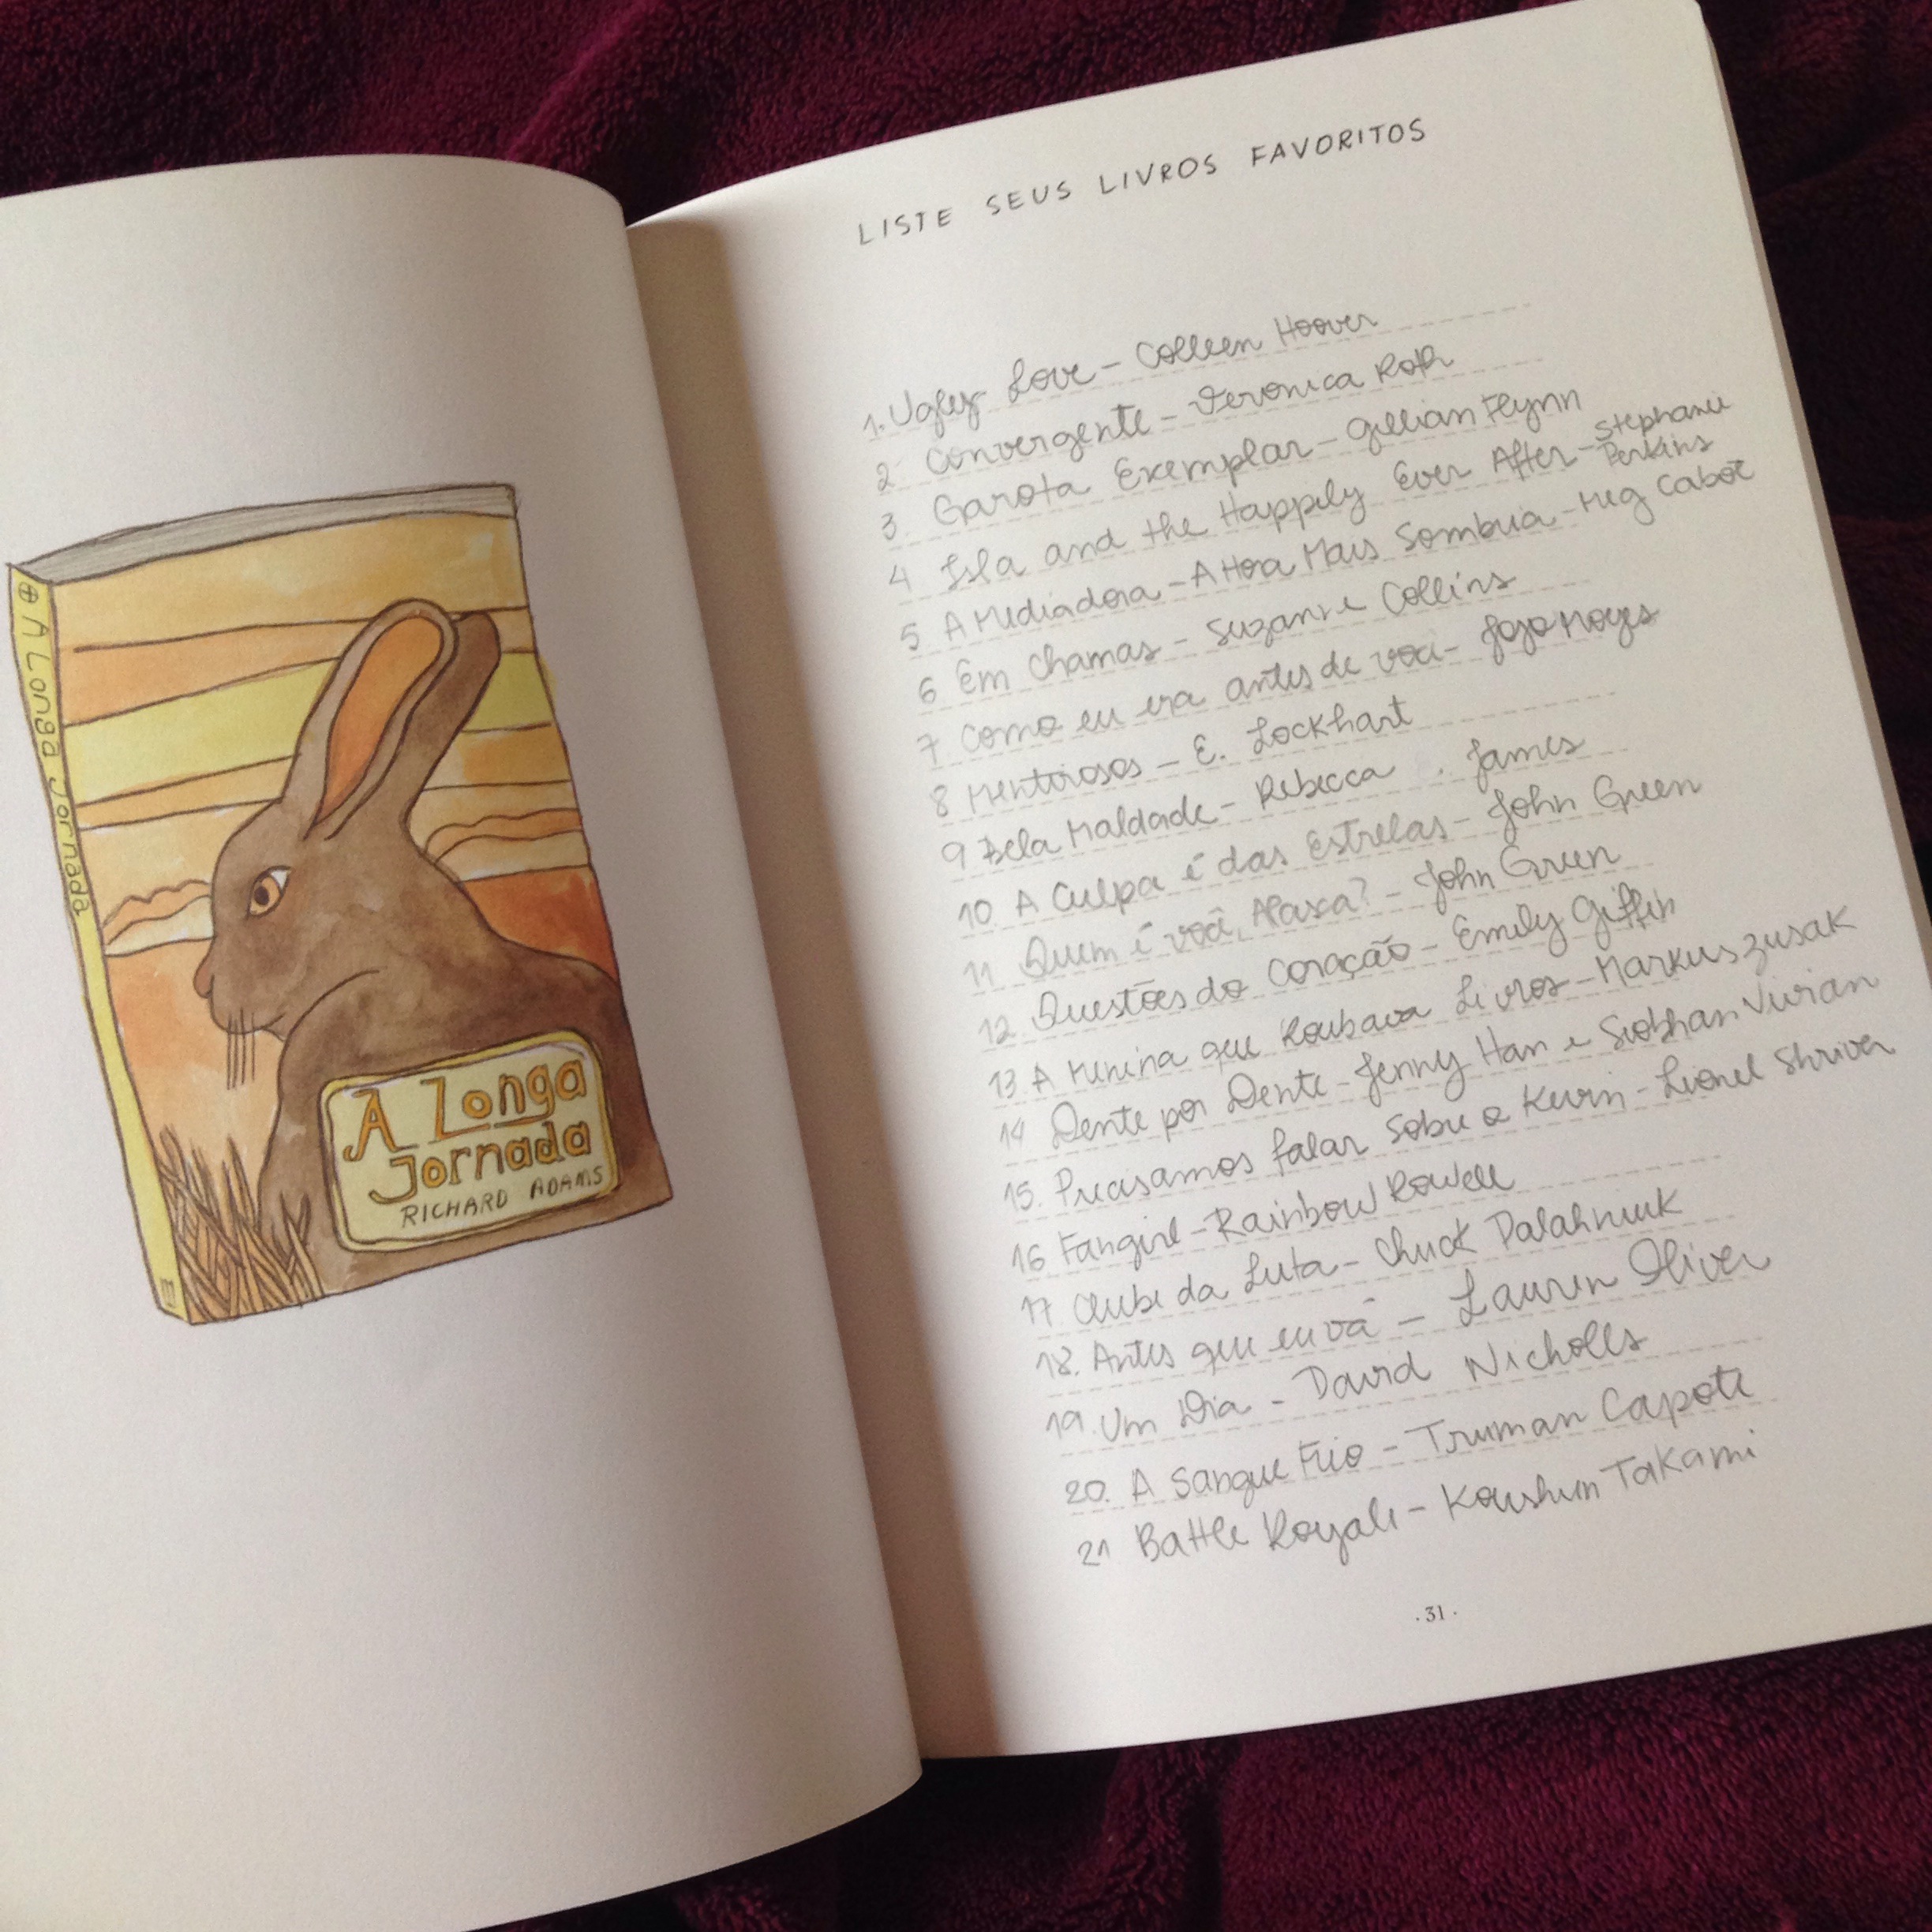 A Longa Jornada
A Longa
Jornada
RICHARD ADAMS
LISTE SEUS LIVROS FAVORITOS
1. Ugly Love - Colleen Hoover
2 Convergente - Veronica Roth
3. Garota Exemplar - Gillian Flynn
4 Isla and the Happily Ever After - Stephanie Perkins
5 A Mediadora - A Hora Mais Sombria - Meg Cabot
6 Em Chamas - Suzanne Collins
7 Como eu era antes de você - Jojo Moyes
8 Mentirosos - E. Lockhart
9 Bela Maldade - Rebecca . James
10. A Culpa é das Estrelas - John Green
11 Quem é você, Alasca? - John Green
12. Questões do Coração - Emily Giffin
13. A Menina que Roubava Livros - Markus Zusak
14 Dente por Dente - Jenny Han e Siobhan Vivian
15. Precisamos falar sobre o Kevin - Lionel Shriver
16 Fangirl - Rainbow Rowell
17. Clube da Luta - Chuck Palahniuk
18. Antes que eu vá - Lauren Oliver
19. Um Dia - David Nicholls
20. A Sangue Frio - Truman Capote
21 Battle Royale - Koushun Takami
· 31 ·